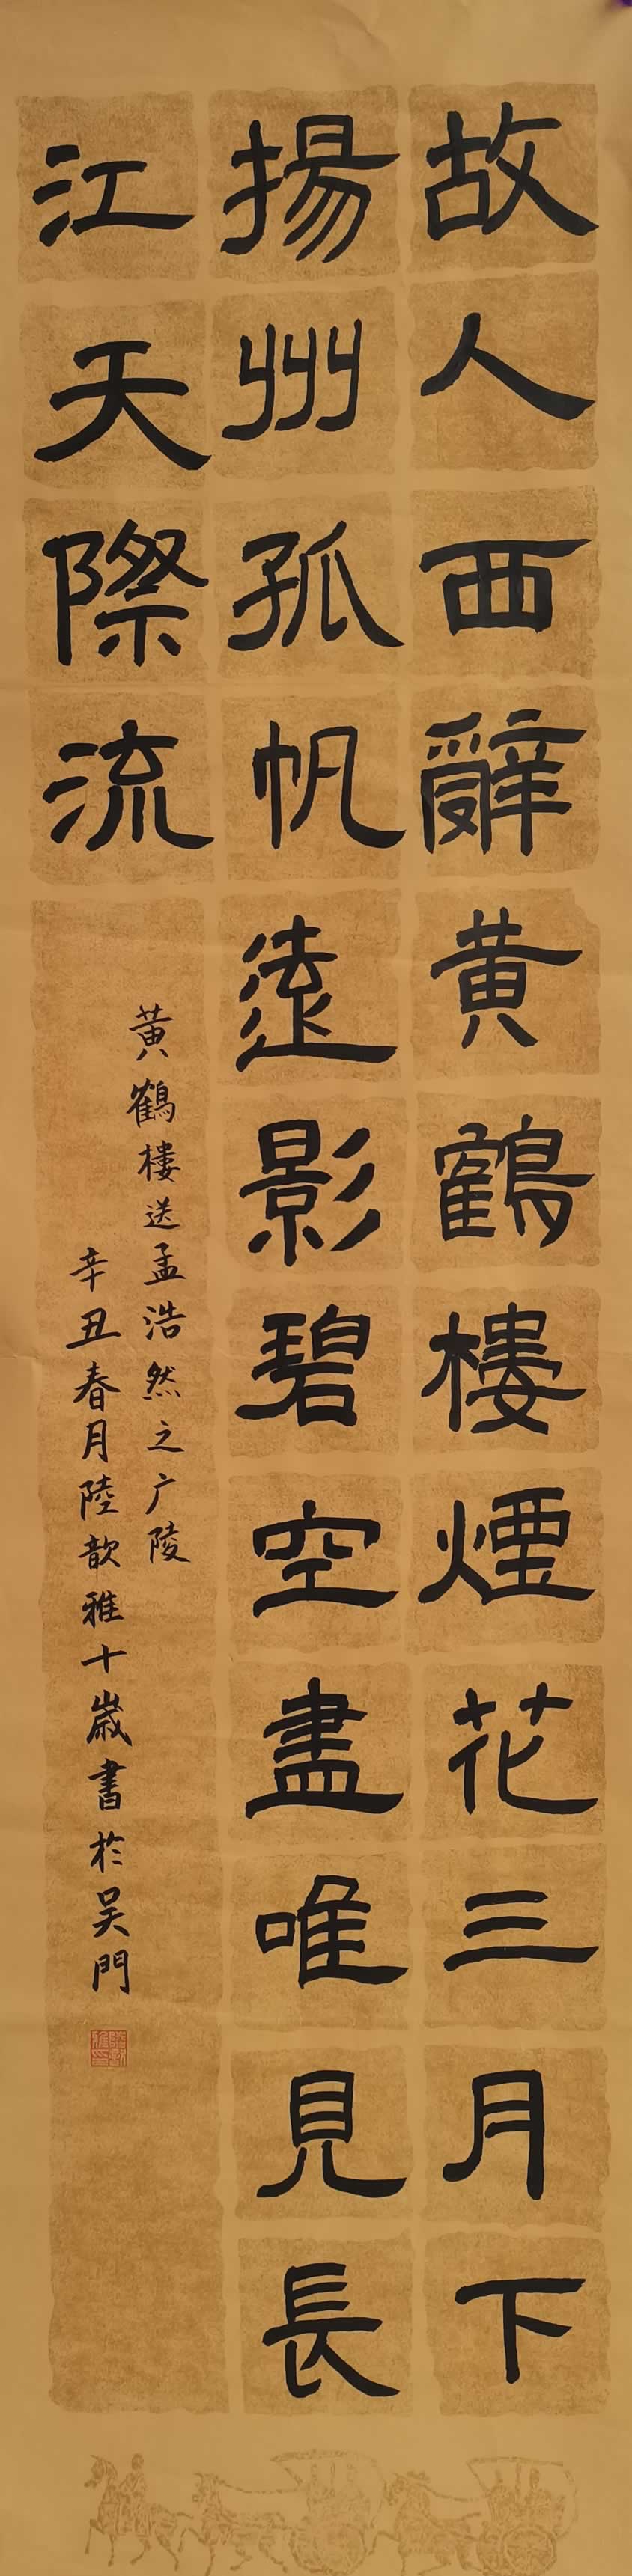 故人西辭黄鶴樓煙花三月下
揚州孤帆遠影碧空盡唯見長
江天際流
黄鶴樓送孟浩然之广陵
辛丑春月陸歆雅十歲書於吴門